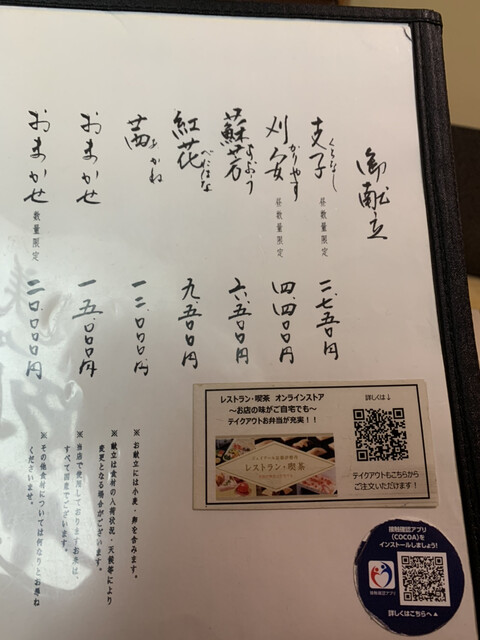 御献立
支子 くちなし 昼数量限定 二、七五〇円
刈安 かりやす 昼数量限定 四、四〇〇円
蘇芳 すおう 六、五〇〇円
紅花 べにばな 九、五〇〇円
茜 あかね 一二、〇〇〇円
おまかせ 一五、〇〇〇円
おまかせ 数量限定 二〇、〇〇〇円
※お献立には小麦・卵を含みます。
※献立は食材の入荷状況・天候等により
変更となる場合がございます。
※当店で使用しておりますお米は、
すべて国産でございます。
※その他食材については何なりとお尋ね
くださいませ。
レストラン・喫茶 オンラインストア
～お店の味がご自宅でも～
テイクアウトお弁当が充実！！
レストラン・喫茶
詳しくは↓
テイクアウトもこちらから
ご注文いただけます！
接触確認アプリ
(COCOA)を
インストールしましょう！
接触確認アプリ
詳しくはこちらへ▲